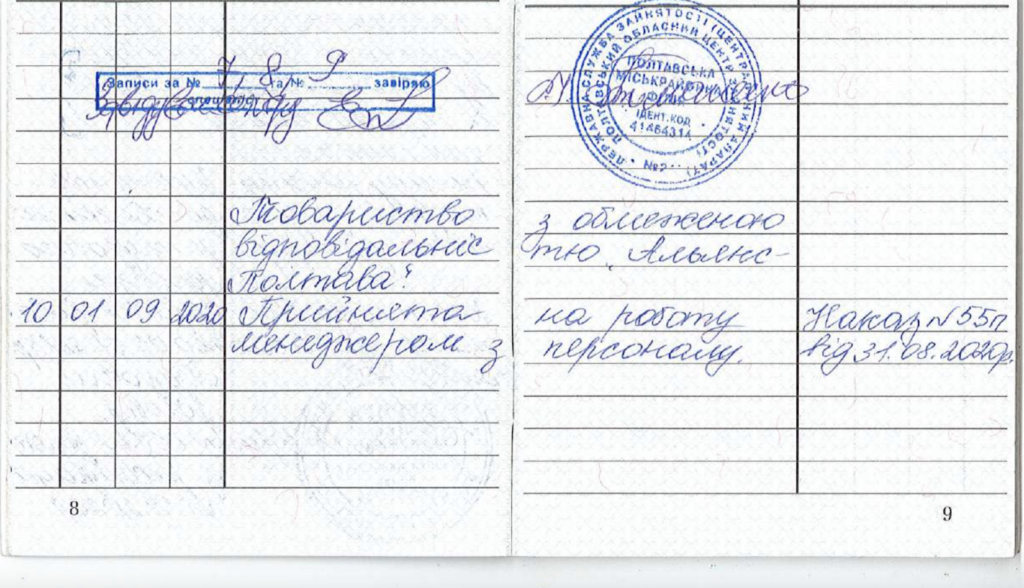 Записи за № 7, 8, 9 завіряю
ДЕРЖАВНА СЛУЖБА ЗАЙНЯТОСТІ (ЦЕНТРАЛЬНИЙ АПАРАТ)
ПОЛТАВСЬКИЙ ОБЛАСНИЙ ЦЕНТР ЗАЙНЯТОСТІ
ПОЛТАВСЬКА
МІСЬКРАЙОННА
ФІЛІЯ
ІДЕНТ. КОД
41464314
№2
Товариство з обмеженою
відповідальніс тю „Альянс-
Полтава"
10 01 09 2020 Прийнята на роботу Наказ №55п
менеджером з персоналу. від 31.08.2020р.
8
9